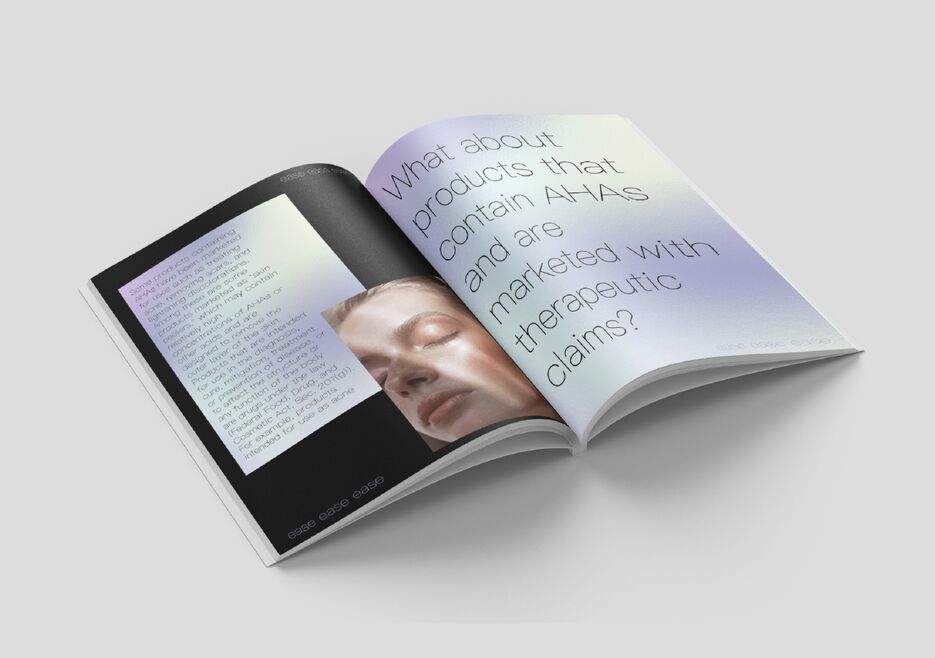 ease ease ease
Some products containing
AHAs have been marketed
for uses such as treating
acne, removing scars, and
lightening discolorations.
Among these are some
products marketed as "skin
peelers," which may contain
relatively high
concentrations of AHAs or
other acids and are
designed to remove the
outer layer of the skin.
Products that are intended
for use in the diagnosis,
cure, mitigation, treatment,
or prevention of disease, or
to affect the structure or
any function of the body
are drugs under the law
(Federal Food, Drug, and
Cosmetic Act, Sec. 201(g)).
For example, products
intended for use as acne
ease ease ease
What about
products that
contain AHAs
and are
marketed with
therapeutic
claims?
ease ease ease